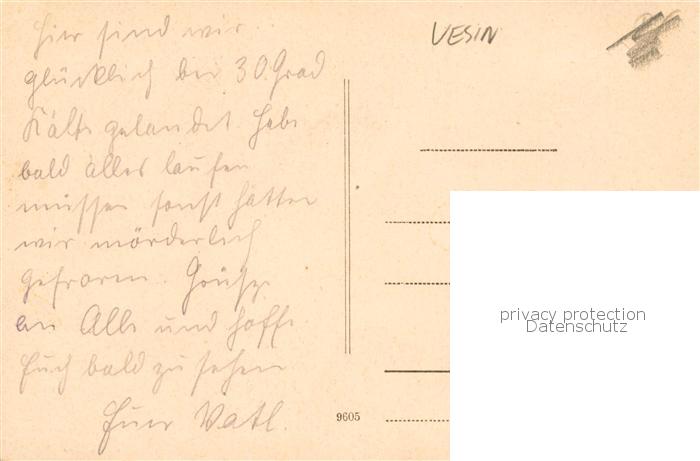 Hier sind wir
glücklich bei 30 Grad
Kälte gelandet. Habe
bald alles laufen
müssen sonst hätten
wir mörderlich
gefroren. Grüße
an Alle und hoffe
Euch bald zu sehen
Euer Vatl.
VESIN
9605
privacy protection
Datenschutz